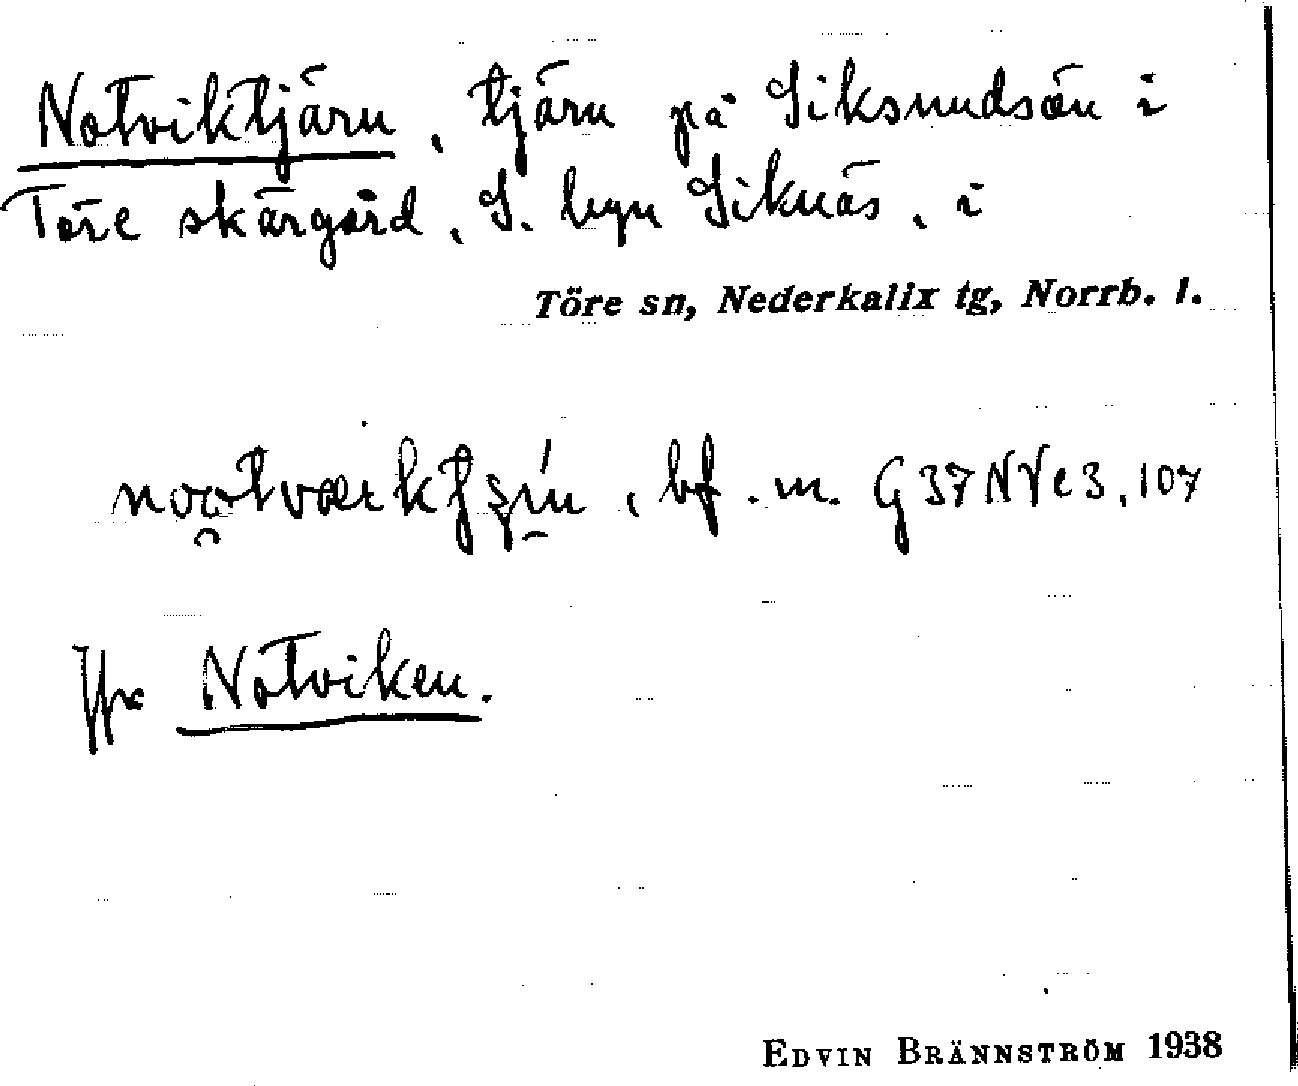 Notviktjärn, tjärn på Siksundsön i
Töre skärgård, S. byn Siknäs, i
Töre sn, Nederkalix tg, Norrb. l.
bf. m. G37NVc3,107
Jfr Notviken.
EDVIN BRÄNNSTRÖM 1938